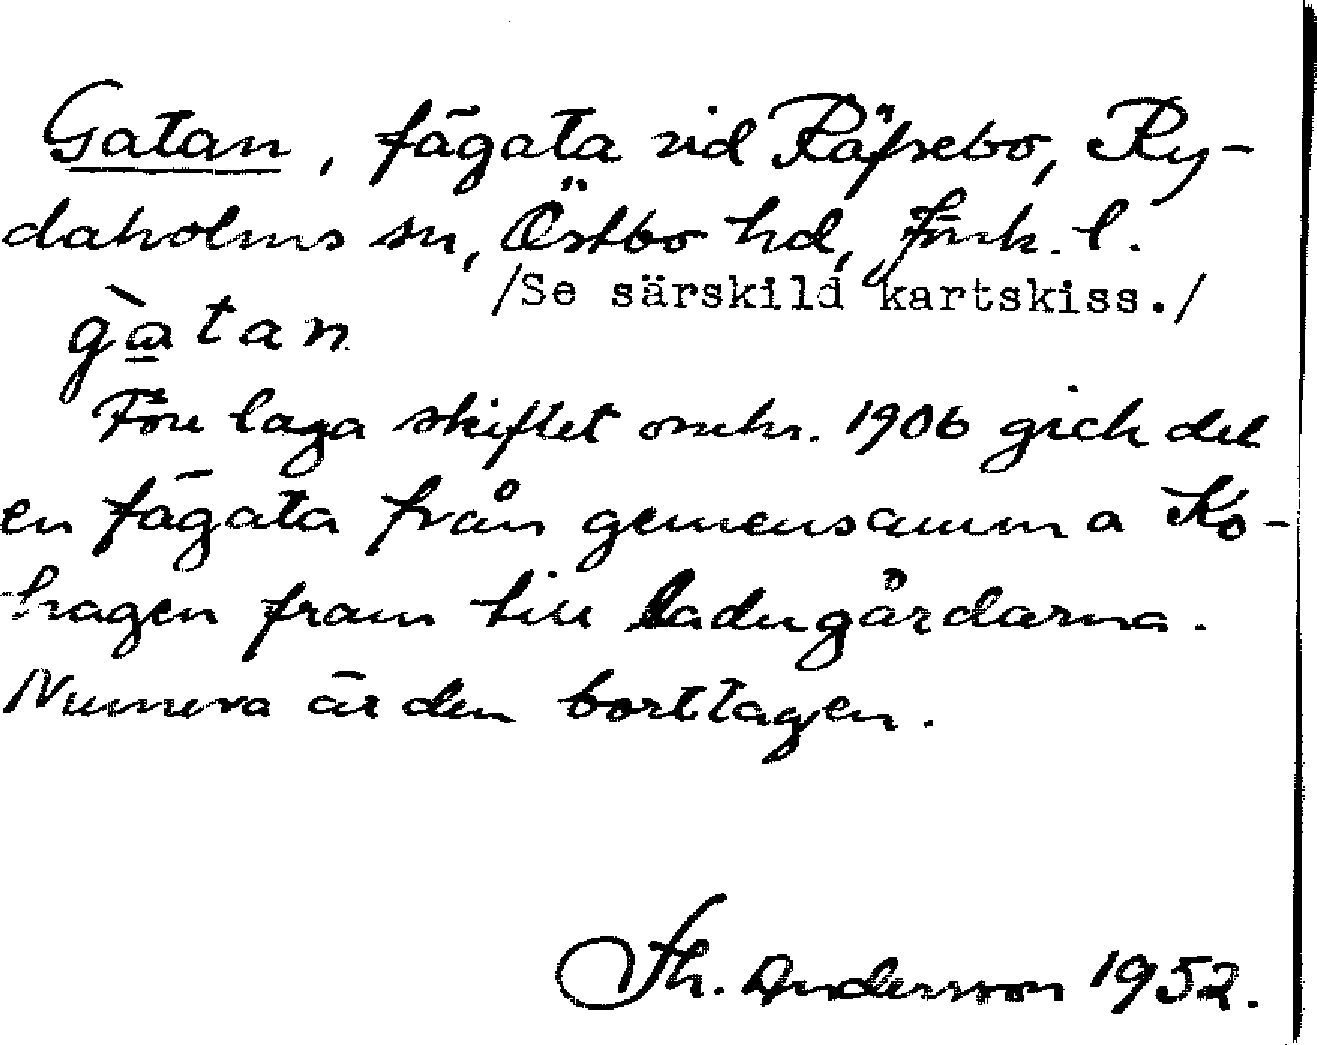 Gatan, fägata vid Räfsebo, Ry-
daholms sn, Östbo hd, Jönk. l.
/Se särskild kartskiss./
gàtan
Före laga skiftet omkr. 1906 gick det
en fägata från gemensamma Ko-
hagen fram till ladugårdarna.
Numera är den borttagen.
Th. Andersson 1952.